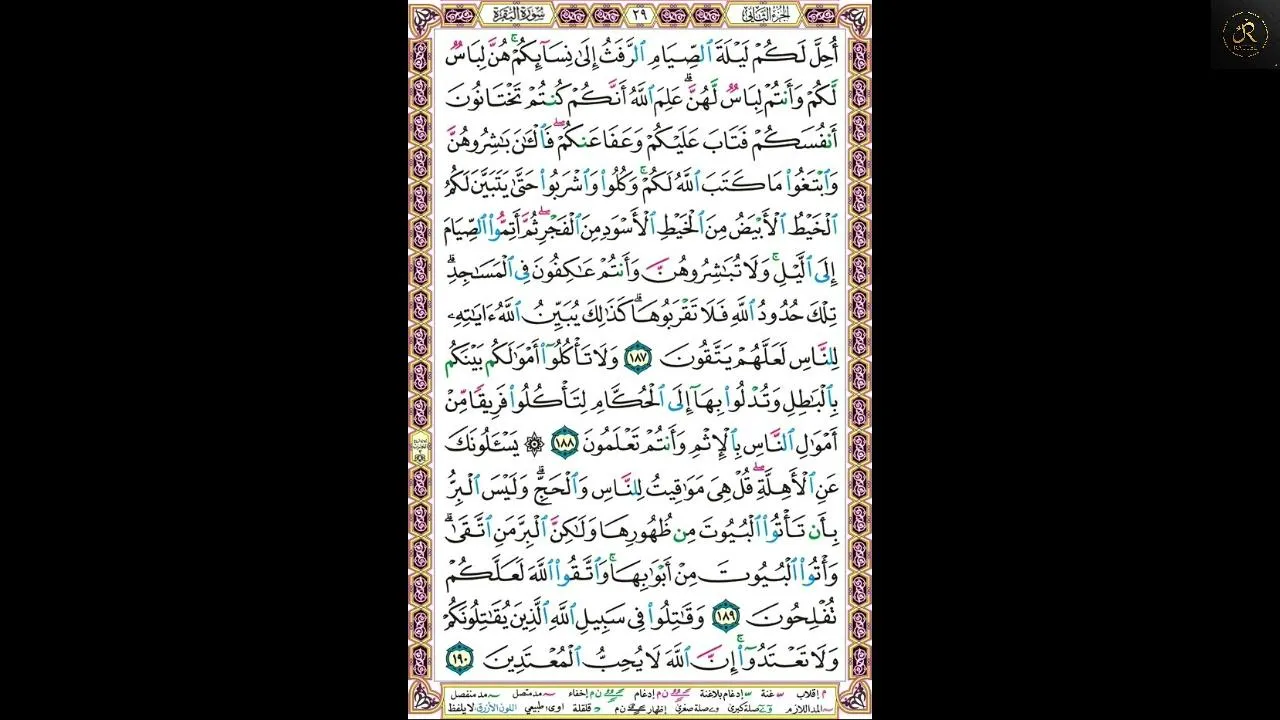 الجزء الثاني
٢٩
سورة البقرة
أُحِلَّ لَكُمْ لَيْلَةَ ٱلصِّيَامِ ٱلرَّفَثُ إِلَىٰ نِسَآئِكُمْ ۚ هُنَّ لِبَاسٌ
لَّكُمْ وَأَنتُمْ لِبَاسٌ لَّهُنَّ ۗ عَلِمَ ٱللَّهُ أَنَّكُمْ كُنتُمْ تَخْتَانُونَ
أَنفُسَكُمْ فَتَابَ عَلَيْكُمْ وَعَفَا عَنكُمْ ۖ فَٱلْـَٰٔنَ بَـٰشِرُوهُنَّ
وَٱبْتَغُوا۟ مَا كَتَبَ ٱللَّهُ لَكُمْ ۚ وَكُلُوا۟ وَٱشْرَبُوا۟ حَتَّىٰ يَتَبَيَّنَ لَكُمُ
ٱلْخَيْطُ ٱلْأَبْيَضُ مِنَ ٱلْخَيْطِ ٱلْأَسْوَدِ مِنَ ٱلْفَجْرِ ۖ ثُمَّ أَتِمُّوا۟ ٱلصِّيَامَ
إِلَى ٱلَّيْلِ ۚ وَلَا تُبَـٰشِرُوهُنَّ وَأَنتُمْ عَـٰكِفُونَ فِى ٱلْمَسَـٰجِدِ ۗ
تِلْكَ حُدُودُ ٱللَّهِ فَلَا تَقْرَبُوهَا ۗ كَذَٰلِكَ يُبَيِّنُ ٱللَّهُ ءَايَـٰتِهِۦ
لِلنَّاسِ لَعَلَّهُمْ يَتَّقُونَ ١٨٧ وَلَا تَأْكُلُوٓا۟ أَمْوَٰلَكُم بَيْنَكُم
بِٱلْبَـٰطِلِ وَتُدْلُوا۟ بِهَآ إِلَى ٱلْحُكَّامِ لِتَأْكُلُوا۟ فَرِيقًا مِّنْ
أَمْوَٰلِ ٱلنَّاسِ بِٱلْإِثْمِ وَأَنتُمْ تَعْلَمُونَ ١٨٨ ۞ يَسْـَٔلُونَكَ
عَنِ ٱلْأَهِلَّةِ ۖ قُلْ هِىَ مَوَٰقِيتُ لِلنَّاسِ وَٱلْحَجِّ ۗ وَلَيْسَ ٱلْبِرُّ
بِأَن تَأْتُوا۟ ٱلْبُيُوتَ مِن ظُهُورِهَا وَلَـٰكِنَّ ٱلْبِرَّ مَنِ ٱتَّقَىٰ ۗ
وَأْتُوا۟ ٱلْبُيُوتَ مِنْ أَبْوَٰبِهَا ۚ وَٱتَّقُوا۟ ٱللَّهَ لَعَلَّكُمْ
تُفْلِحُونَ ١٨٩ وَقَـٰتِلُوا۟ فِى سَبِيلِ ٱللَّهِ ٱلَّذِينَ يُقَـٰتِلُونَكُمْ
وَلَا تَعْتَدُوٓا۟ ۚ إِنَّ ٱللَّهَ لَا يُحِبُّ ٱلْمُعْتَدِينَ ١٩٠
م إقلاب غنة إدغام بلاغنة ن م إدغام ن م إخفاء مد متصل مد منفصل
المد اللازم صلة كبرى صلة صغرى إظهار ن م قلقلة اوى: طبيعي اللون الأزرق: لا يلفظ